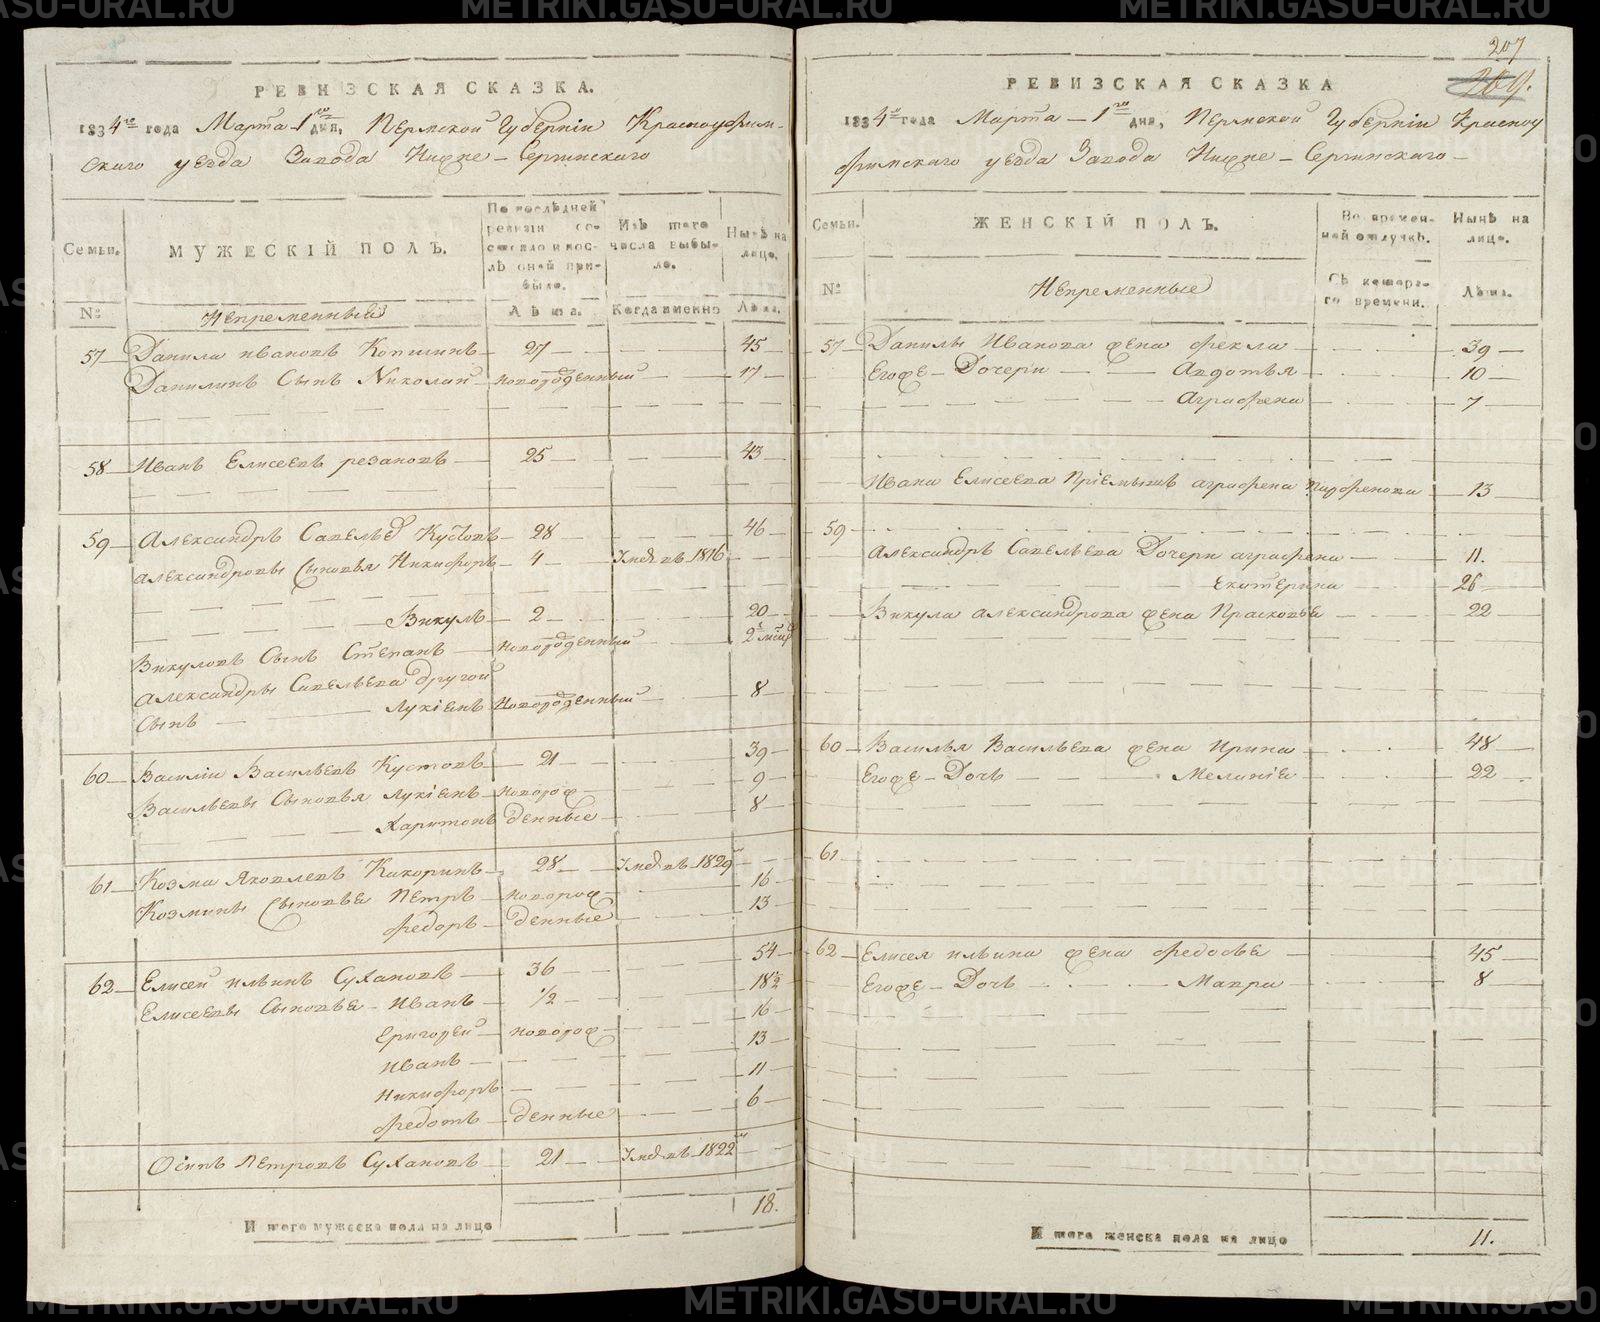 РЕВИЗСКАЯ СКАЗКА.
1834го года Марта 1го дня, Пермской Губернiи Красноуфим-
скаго уезда Завода Нижне-Сергинскаго
Семьи.
МУЖЕСКIЙ ПОЛЪ.
По послѣдней ревизiи состояло и послѣ оной прибыло.
Изъ того числа выбыло.
Нынѣ на лицо.
№
Непременный
Лѣта.
Когда именно
Лѣта.
57 Данила ивановъ Копилинъ 27 45
Данилинъ Сынъ Николай новорожденный 17
58 Иванъ Елисеевъ резановъ 25 43
59 Александръ Савельев Кустовъ 28 46
александровы Сыновья Никифоръ 4 Умре въ 1816
Викулъ 2 20
Викуловъ Сынъ Степанъ новорожденный 2х месец
Александры Савельева другой
Сынъ Лукiенъ новорожденный 8
60 Василiи Васильевъ Кустовъ 21 39
Васильевы Сыновья Лукiенъ новорож 9
Харитонъ денные 8
61 Козма Яковлевъ Какоринъ 28 Умре въ 1829м
Козмины Сыновье Петръ новорож 16
федоръ денные 13
62 Елисей ильинъ Сухановъ 36 54
Елисеевы Сыновье Иванъ 1/2 18 1/2
Григорей новорож 16
Иванъ 13
Никифоръ 11
федотъ денные 6
Осипъ Петровъ Сухановъ 21 Умре въ 1822м
И того мужеска пола на лицо 18.
207
209.
РЕВИЗСКАЯ СКАЗКА
1834го года Марта 1го дня, Пермской Губернiи Красноу
фимскаго уезда Завода Нижне-Сергинскаго
Семьи.
ЖЕНСКIЙ ПОЛЪ.
Во временной отлучкѣ.
Нынѣ на лицо.
№
Непременные
Съ котораго времени.
Лѣта.
57 Данилы Иванова жена фекла 39
Егоже Дочери Авдотья 10
Аграфена 7
Ивана Елисеева Прiемышъ аграфена Панфенова 13
59
Александръ Савельева Дочери аграфена 11.
Екатерина 26
Викула александрова жена Прасковье 22
60 Василья Васильева жена Ирина 48
Егоже Дочь Меланiе 22
61
62 Елисея ильина жена федосье 45
Егоже Дочь Мавра 8
И того женска пола на лицо 11.